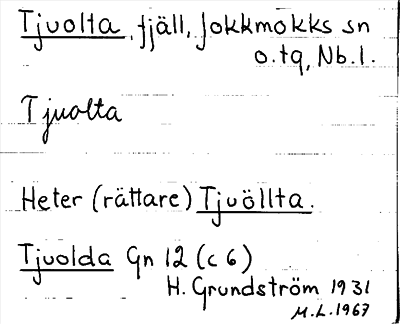 Tjuolta, fjäll, Jokkmokks sn
o. tq, Nb. l.
Tjuolta
Heter (rättare) Tjuöllta.
Tjuolda Gn 12 (c 6)
H. Grundström 1931
M.L. 1967